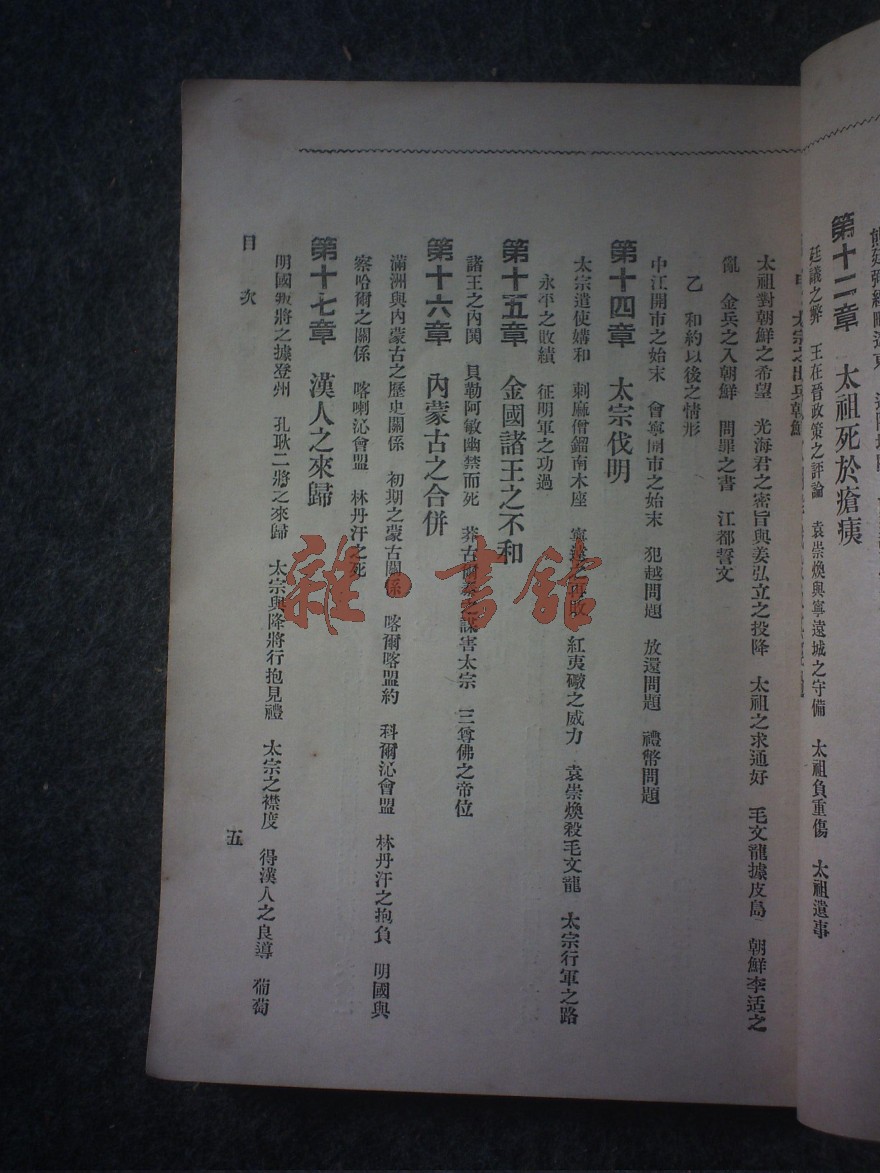 第十二章　太祖死於瘡痍
廷議之弊　王在晉政策之評論　袁崇煥與寧遠城之守備　太祖負重傷　太祖遺事
太宗之出兵朝鮮
太祖對朝鮮之希望　光海君之密旨與姜弘立之投降　太祖之求通好　毛文龍據皮島　朝鮮李适之
亂　金兵之入朝鮮　問罪之書　江都誓文
乙　和約以後之情形
中江開市之始末　會寧開市之始末　犯越問題　放還問題　禮幣問題
第十四章　太宗伐明
太宗遣使媾和　刺麻僧鎦南木座　寧遠之再敗　紅夷礮之威力　袁崇煥殺毛文龍　太宗行軍之路
永平之敗績　征明軍之功過
第十五章　金國諸王之不和
諸王之內鬨　貝勒阿敏幽禁而死　莽古爾泰之謀害太宗　三尊佛之帝位
第十六章　內蒙古之合併
滿洲與內蒙古之歷史關係　初期之蒙古關係　喀爾喀盟約　科爾沁會盟　林丹汗之抱負　明國與
察哈爾之關係　喀喇沁會盟　林丹汗之死
第十七章　漢人之來歸
明國叛將之據登州　孔耿二將之來歸　太宗與降將行抱見禮　太宗之襟度　得漢人之良導　葡萄
目　次
五
雜·書館